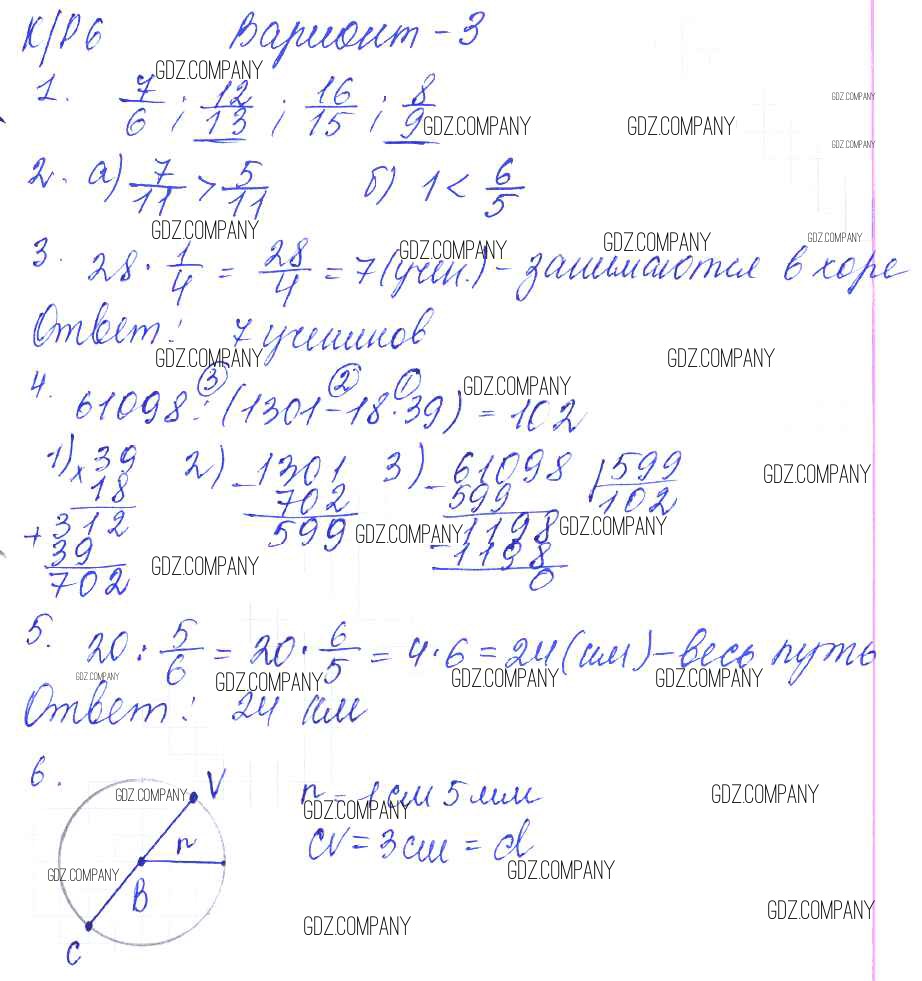 К/Р 6 Вариант - 3
GDZ.COMPANY
1. 7/6 ; 12/13 ; 16/15 ; 8/9
GDZ.COMPANY GDZ.COMPANY GDZ.COMPANY
GDZ.COMPANY
2. а) 7/11 > 5/11 б) 1 < 6/5
GDZ.COMPANY GDZ.COMPANY GDZ.COMPANY GDZ.COMPANY
3. 28 · 1/4 = 28/4 = 7 (учен.) - занимаются в хоре
Ответ: 7 учеников
GDZ.COMPANY GDZ.COMPANY
4. 3 2 1
GDZ.COMPANY
61098 : (1301 - 18 · 39) = 102
1) × 39 2) - 1301 3) - 61098 | 599
18 702 599 102
GDZ.COMPANY
+ 312 599 - 1198
GDZ.COMPANY GDZ.COMPANY
39 1198
702 0
GDZ.COMPANY
5. 20 : 5/6 = 20 · 6/5 = 4 · 6 = 24 (км) - весь путь
GDZ.COMPANY GDZ.COMPANY GDZ.COMPANY GDZ.COMPANY
Ответ: 24 км
6. V r = 1 см 5 мм
GDZ.COMPANY GDZ.COMPANY GDZ.COMPANY
r CV = 3 см = d
GDZ.COMPANY GDZ.COMPANY
B
GDZ.COMPANY GDZ.COMPANY
C